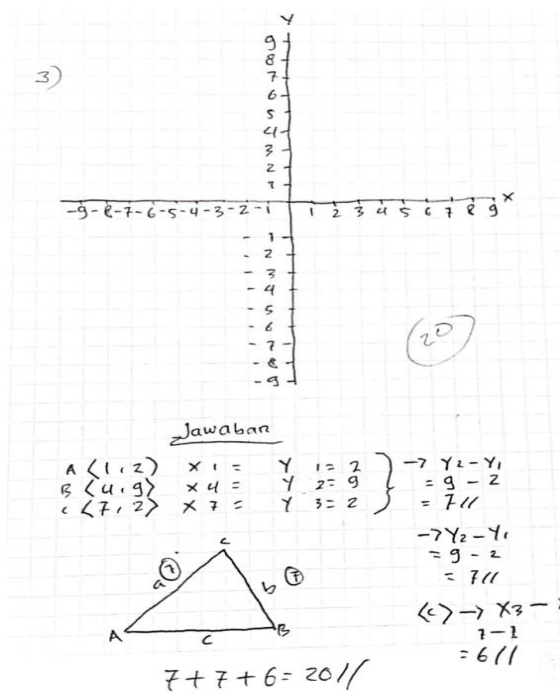 3)
Y
9
8
7
6
5
4
3
2
1
-9 -8 -7 -6 -5 -4 -3 -2 -1 1 2 3 4 5 6 7 8 9 X
- 1
- 2
- 3
- 4
- 5
- 6
- 7
- 8
- 9
20
Jawaban
A <1,2) X 1 = Y 1 = 2
B <4,9) X 4 = Y 2 = 9
C <7,2) X 7 = Y 3 = 2
→ Y2 - Y1
= 9 - 2
= 7 //
→ Y2 - Y1
= 9 - 2
= 7 //
<c> → X3 -
7 - 1
= 6 //
C
a 7
b 7
A
c
B
7 + 7 + 6 = 20 //